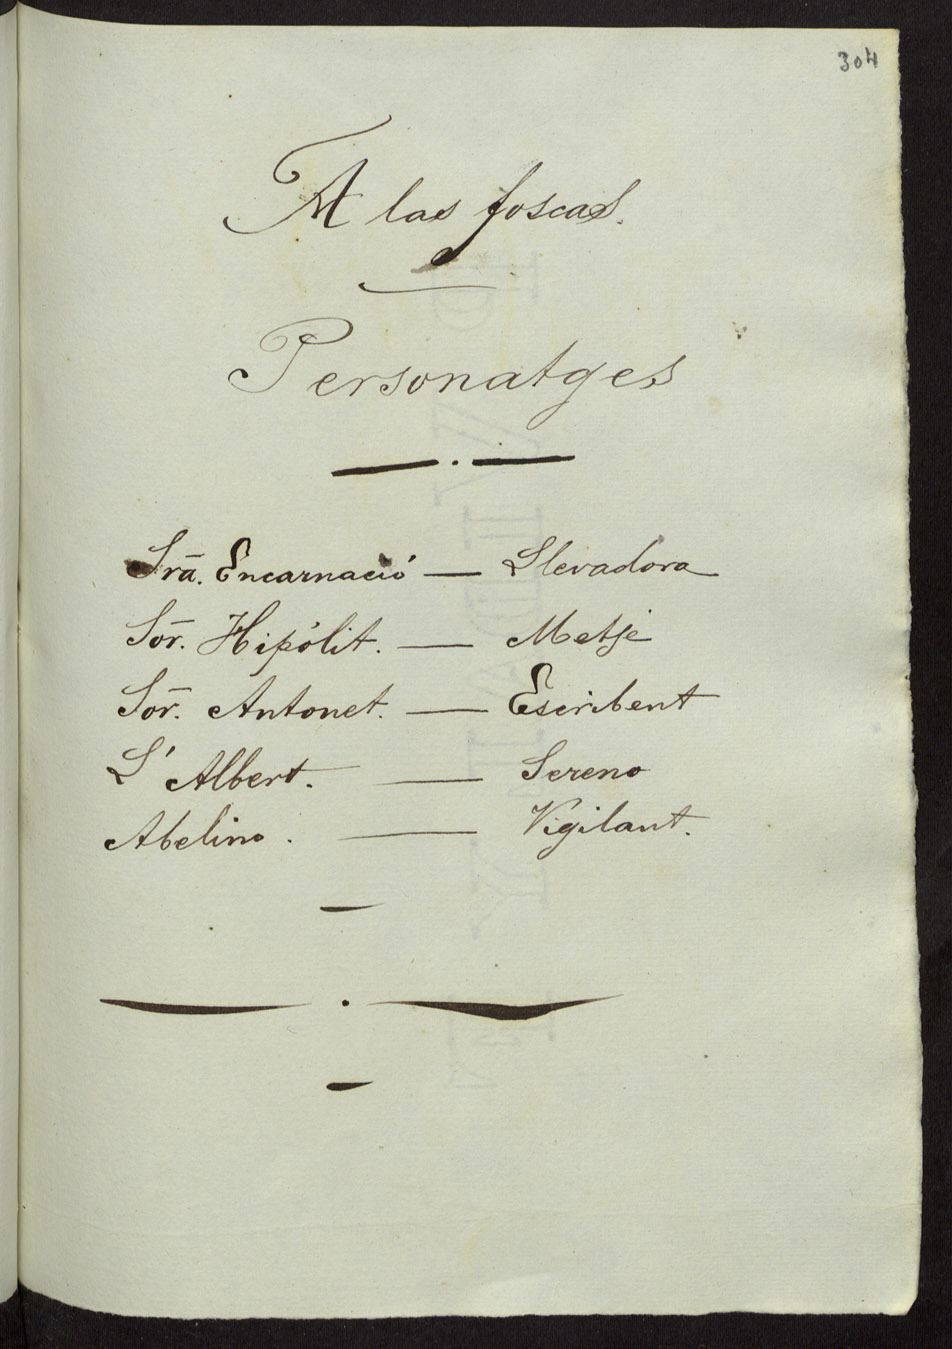 304
A las foscas.
Personatges
Sra. Encarnació — Llevadora
Sor. Hipólit. — Metje
Sor. Antonet. — Escribent
L' Albert. — Sereno
Abelino. — Vigilant.